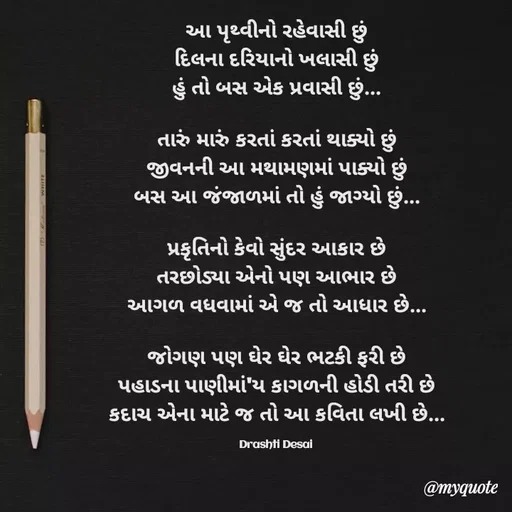 આ પૃથ્વીનો રહેવાસી છું
દિલના દરિયાનો ખલાસી છું
હું તો બસ એક પ્રવાસી છું...
તારું મારું કરતાં કરતાં થાક્યો છું
જીવનની આ મથામણમાં પાક્યો છું
બસ આ જંજાળમાં તો હું જાગ્યો છું...
પ્રકૃતિનો કેવો સુંદર આકાર છે
તરછોડ્યા એનો પણ આભાર છે
આગળ વધવામાં એ જ તો આધાર છે...
જોગણ પણ ઘેર ઘેર ભટકી ફરી છે
પહાડના પાણીમાં'ય કાગળની હોડી તરી છે
કદાચ એના માટે જ તો આ કવિતા લખી છે...
Drashti Desai
@myquote